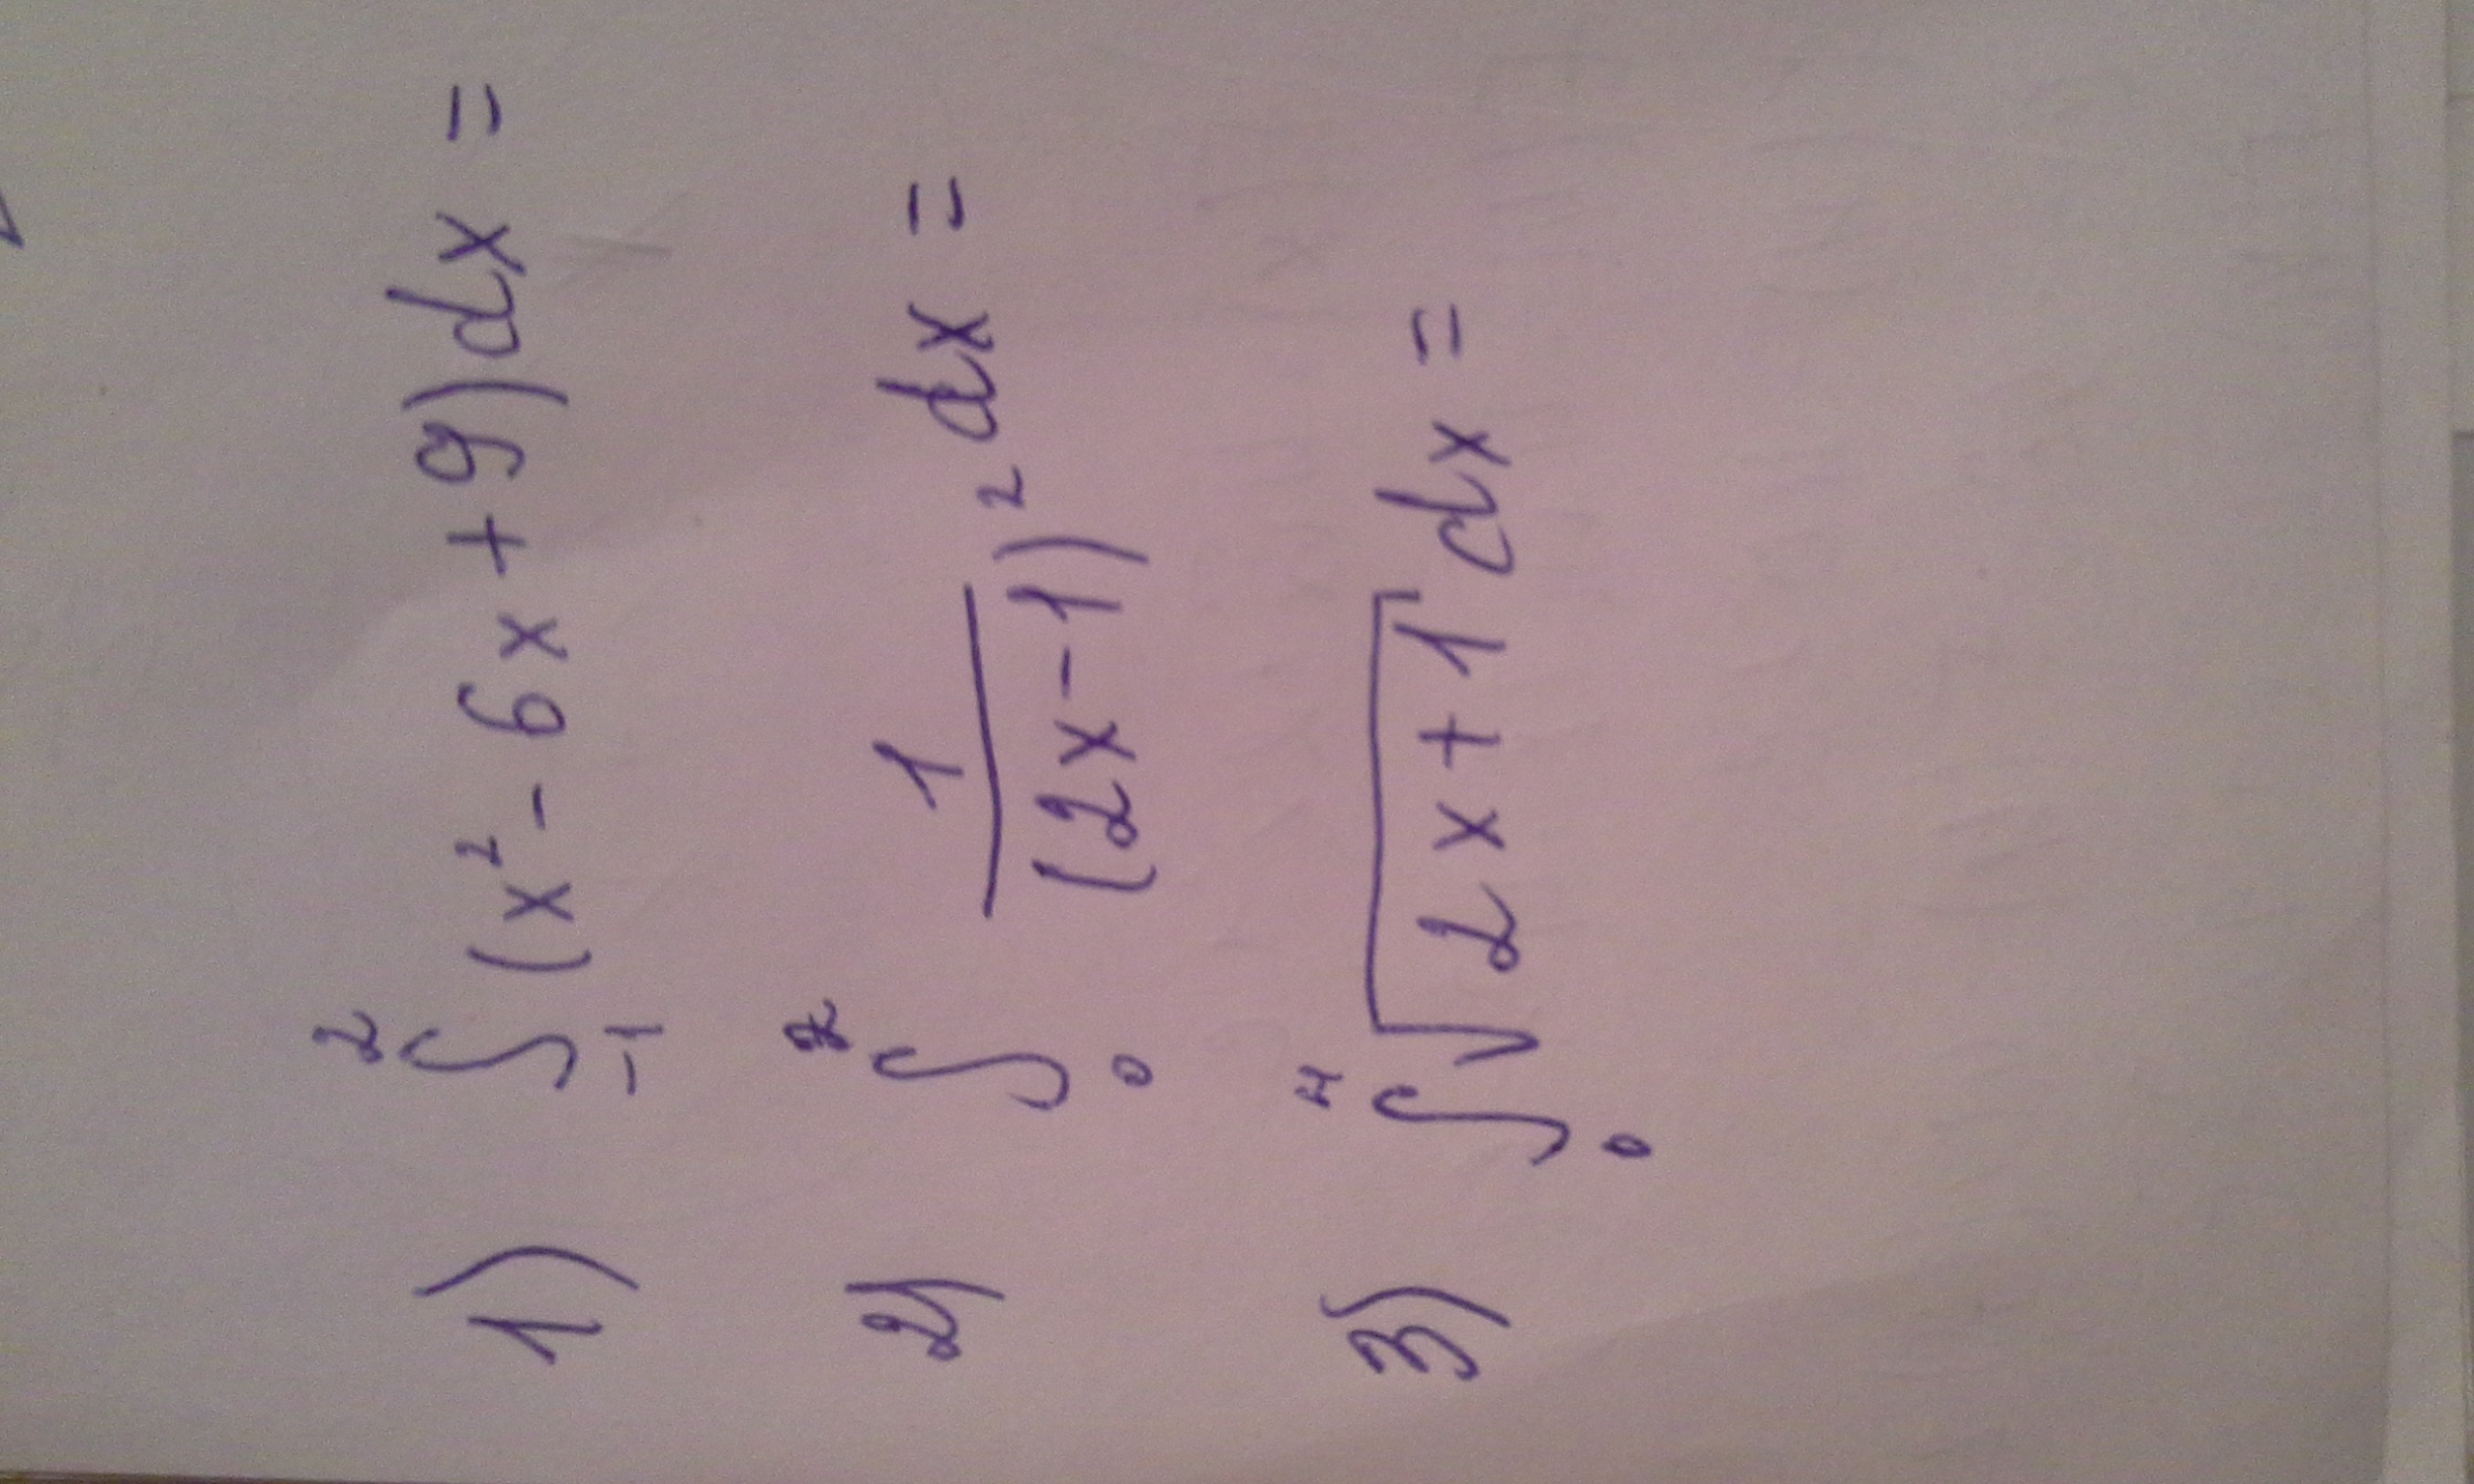 1) ∫_{-1}^{2} (x² - 6x + 9) dx =
2) ∫_{0} 1/(2x-1)² dx =
3) ∫_{0}^{4} √(2x+1) dx =